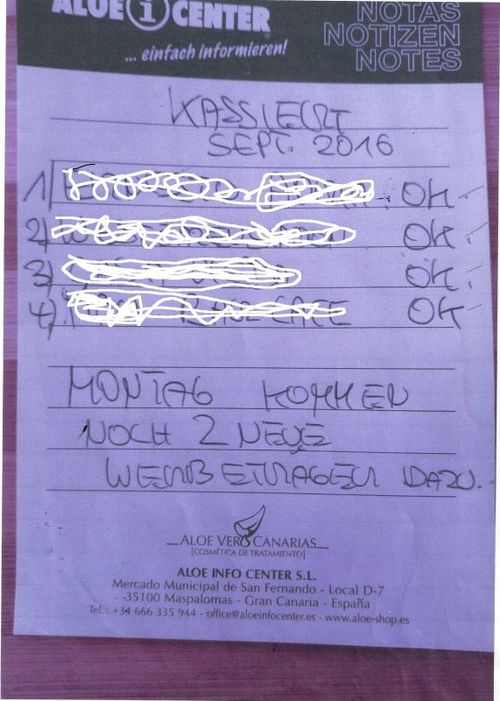 ALOE i CENTER
... einfach informieren!
NOTAS
NOTIZEN
NOTES
KASSIERT
SEPT. 2016
1) OK
2) OK
3) OK
4) OK
MONTAG KOMMEN
NOCH 2 NEUE
WERBETRÄGER DAZU.
ALOE VERA CANARIAS
[COSMÉTICA DE TRATAMIENTO]
ALOE INFO CENTER S.L.
Mercado Municipal de San Fernando - Local D-7
-35100 Maspalomas - Gran Canaria - España
Tel.: +34 666 335 944 - office@aloeinfocenter.es - www.aloe-shop.es